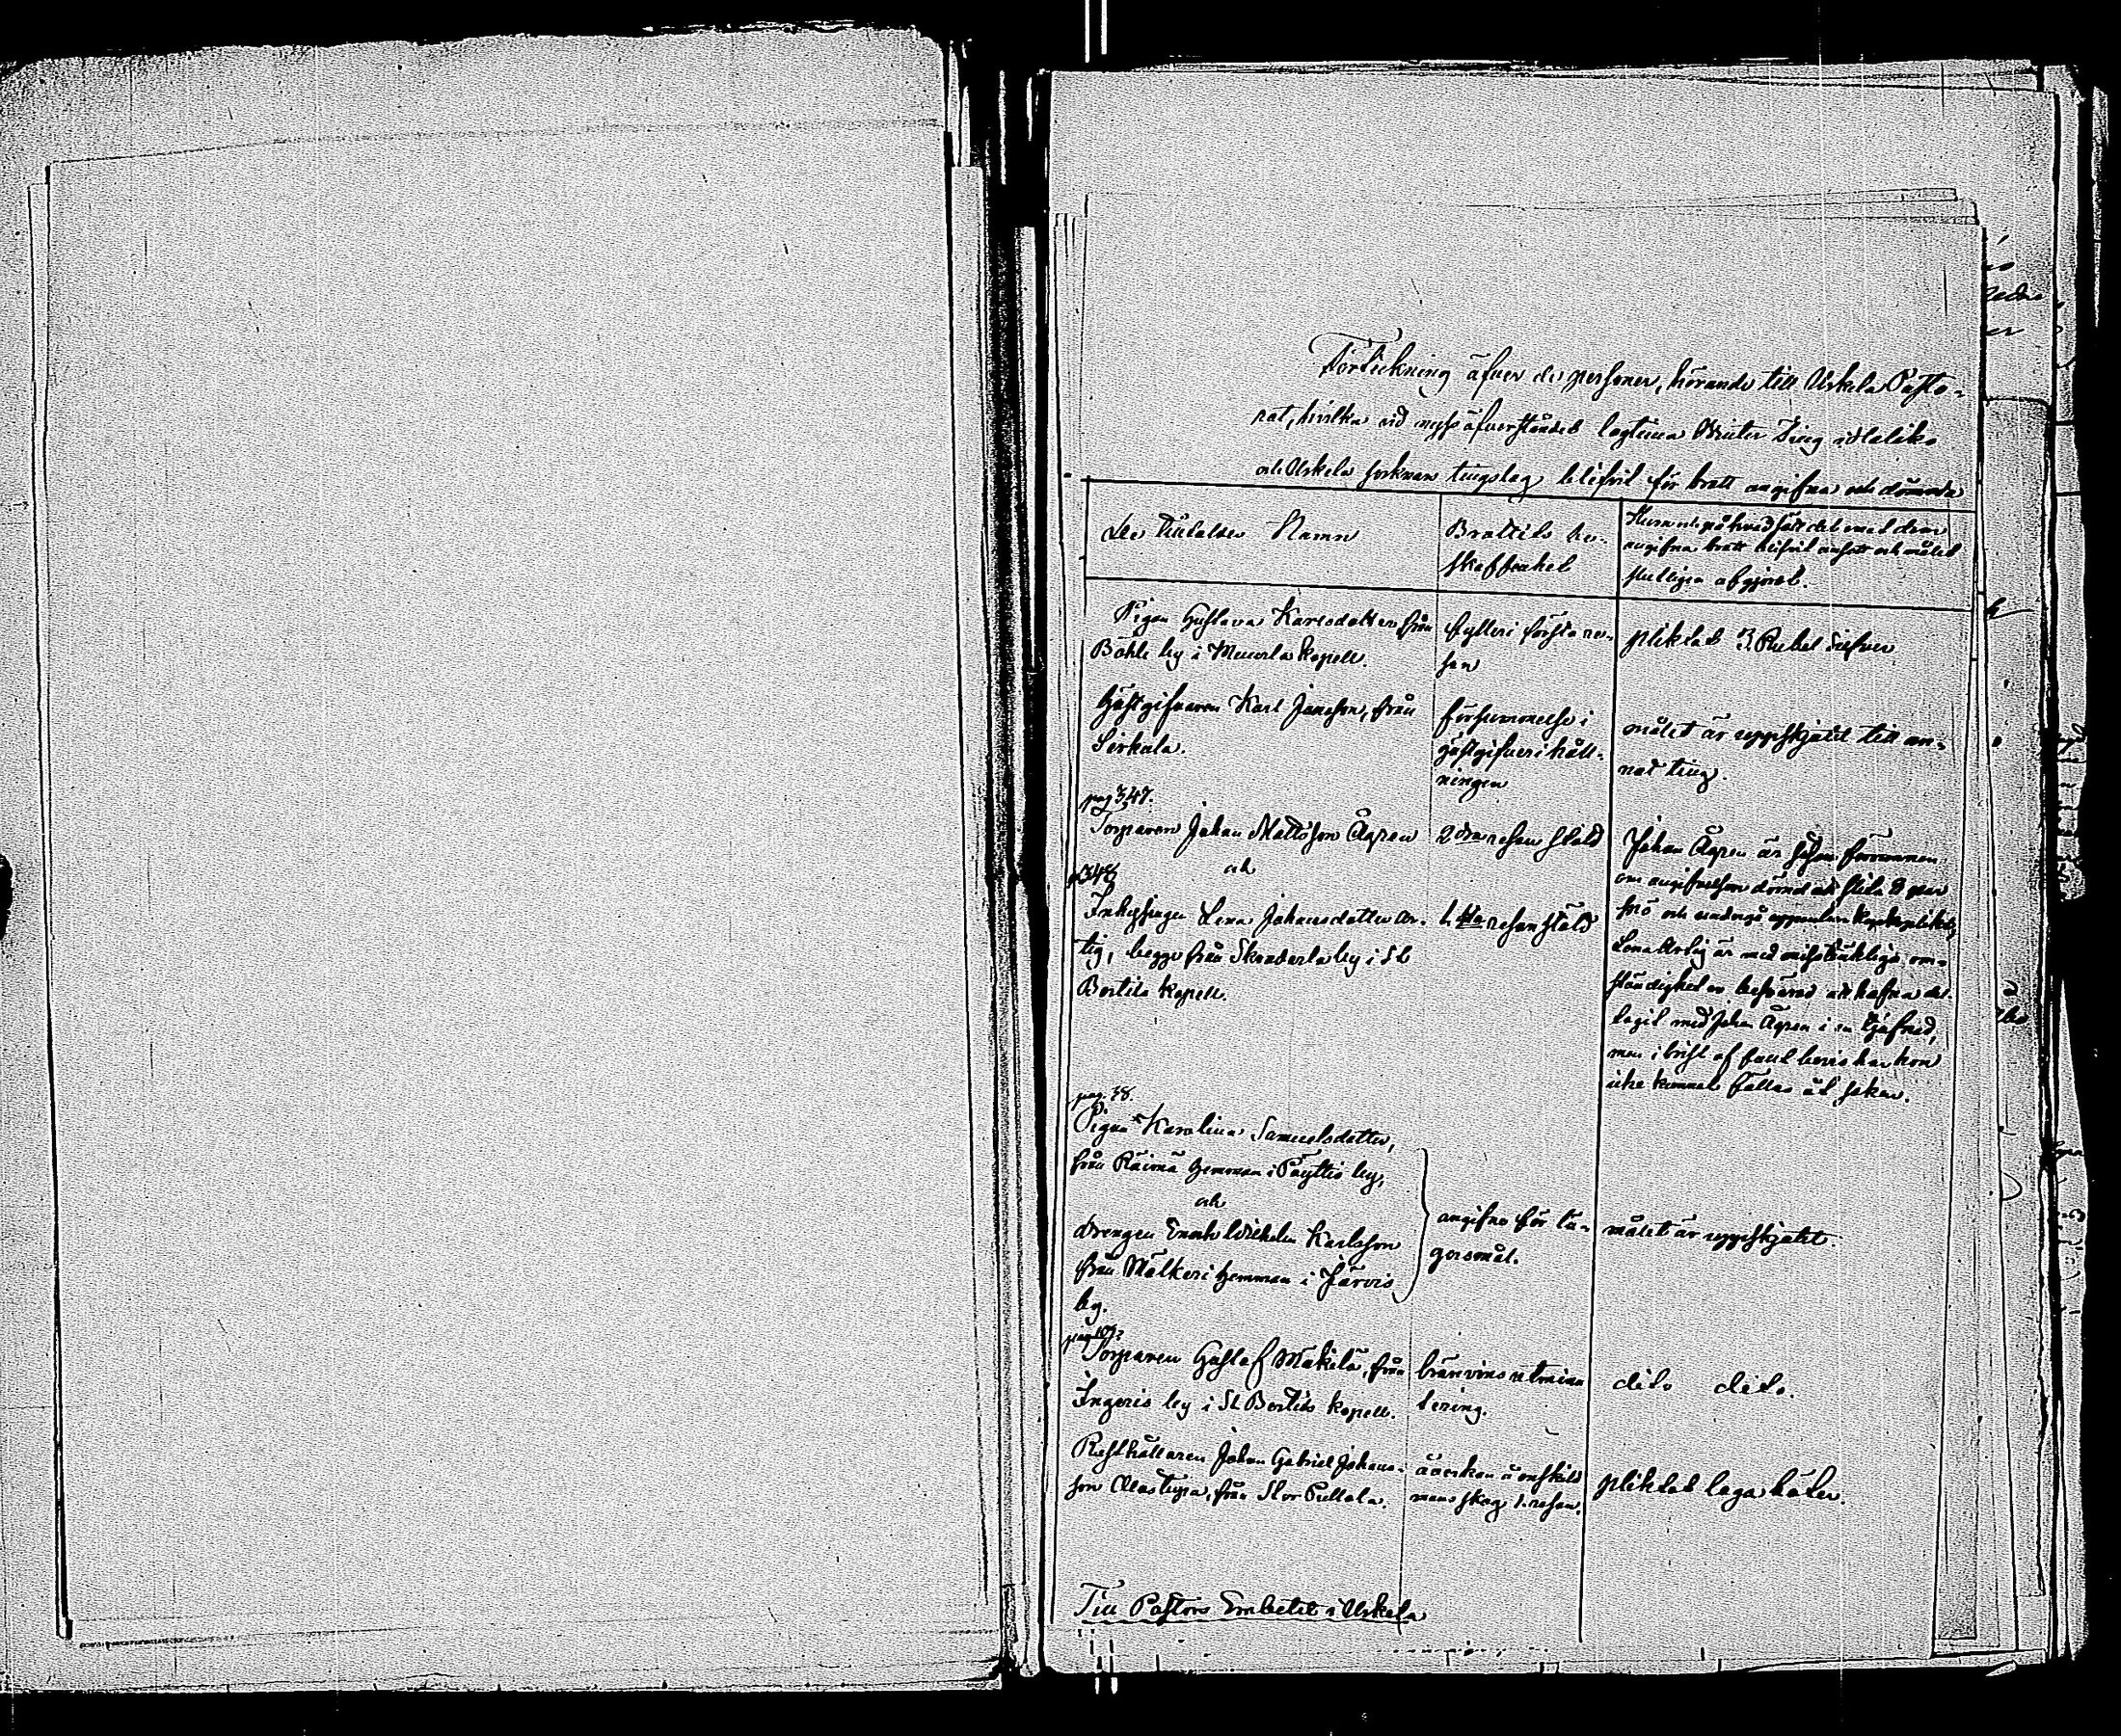 Förteckning öfver de personer, hörande till Uskela Pasto-
rat, hvilka vid nyss öfverståndet lagtima Vinter Ting i Halikko
och Uskela socknars tingslag blifvit för brott angifna och dömda
De tilltaltes Namn
Brottets be-
skaffenhet
Huru och på hvad sätt det med dem
angifna brott blifvit ansett och målet
slutligen afgjordt.
Pigan Gustava Karlsdotter från
Böhle by i Muurla kapell.
fylleri första re-
san
pliktat 3. Rubel Silfver
Gästgifvaren Karl Jansson, från
Sirkula.
försummelse i
gästgifveri håll-
ningen
målet är uppskjutet till an-
nat ting.
pag 347.
Torparen Johan Mattsson Äspen
och
2dra resan stöld
Johan Äspen är såsom förvunnen
om angifvelsen dömd att slita 8 par
spö och undergå uppenbar kyrkoplikt,
p 348
Inhysingen Lena Johansdotter Ar-
tig, begge från Skanderla by i St
Bertils kapell.
1.sta resan stöld
Lena Artig är med misstänkliga om-
ständigheter besvärad att hafva del-
tagit med Johan Äspen i en tjufnad,
men i brist af fullt bevis har hon
icke kunnat fällas åt saken.
pag. 38.
Pigan Karolina Samuelsdotter,
från Räimä hemman i Päyttis by,
och
drengen Enoch Wilhelm Karlsson
från Mälkeri hemman i Järvis
by.
angifne för lä-
gersmål.
målet är uppskjutet.
pag 107.
Torparen Gustaf Mäkilä, från
Ingeris by i St Bertils kapell.
bränvins utminu
tering.
dito dito.
Rusthållaren Johan Gabriel Johans-
son Alastupa, från Stor Pullola.
åverkan å enskild
mans skog 1. resan.
pliktat laga böter.
Till Pastors Embetet i Uskela